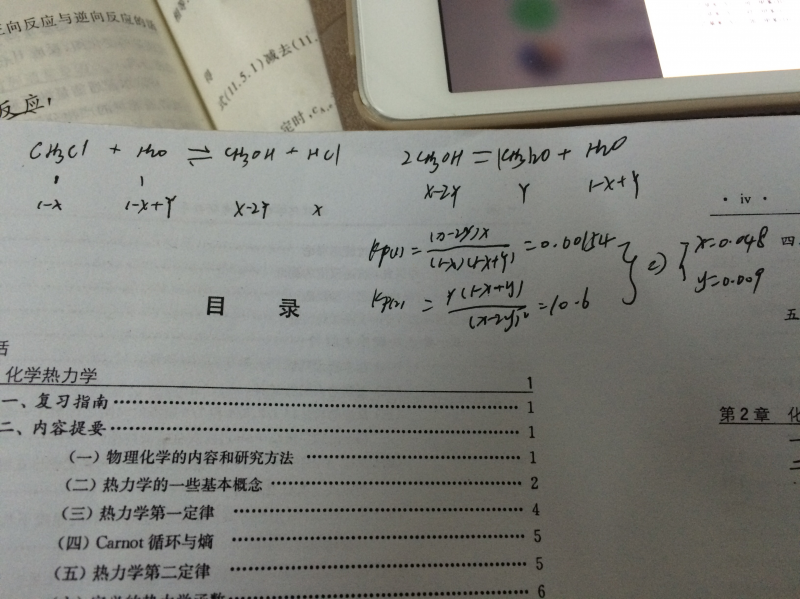 正向反应与逆向反应的
式(11.5.1)减去(11.
定时,
反应,
CH3Cl + H2O ⇌ CH3OH + HCl
1 1
1-x 1-x+y x-2y x
2CH3OH = (CH3)2O + H2O
x-2y y 1-x+y
Kp(1) = (x-2y)x / (1-x)(1-x+y) = 0.00154
Kp(2) = y(1-x+y) / (x-2y)² = 10.6
x=0.048
y=0.009
· iv ·
四
五
目 录
化学热力学 1
一、复习指南 1
二、内容提要 1
(一)物理化学的内容和研究方法 1
(二)热力学的一些基本概念 2
(三)热力学第一定律 4
(四)Carnot 循环与熵 5
(五)热力学第二定律 5
6
第2章 化